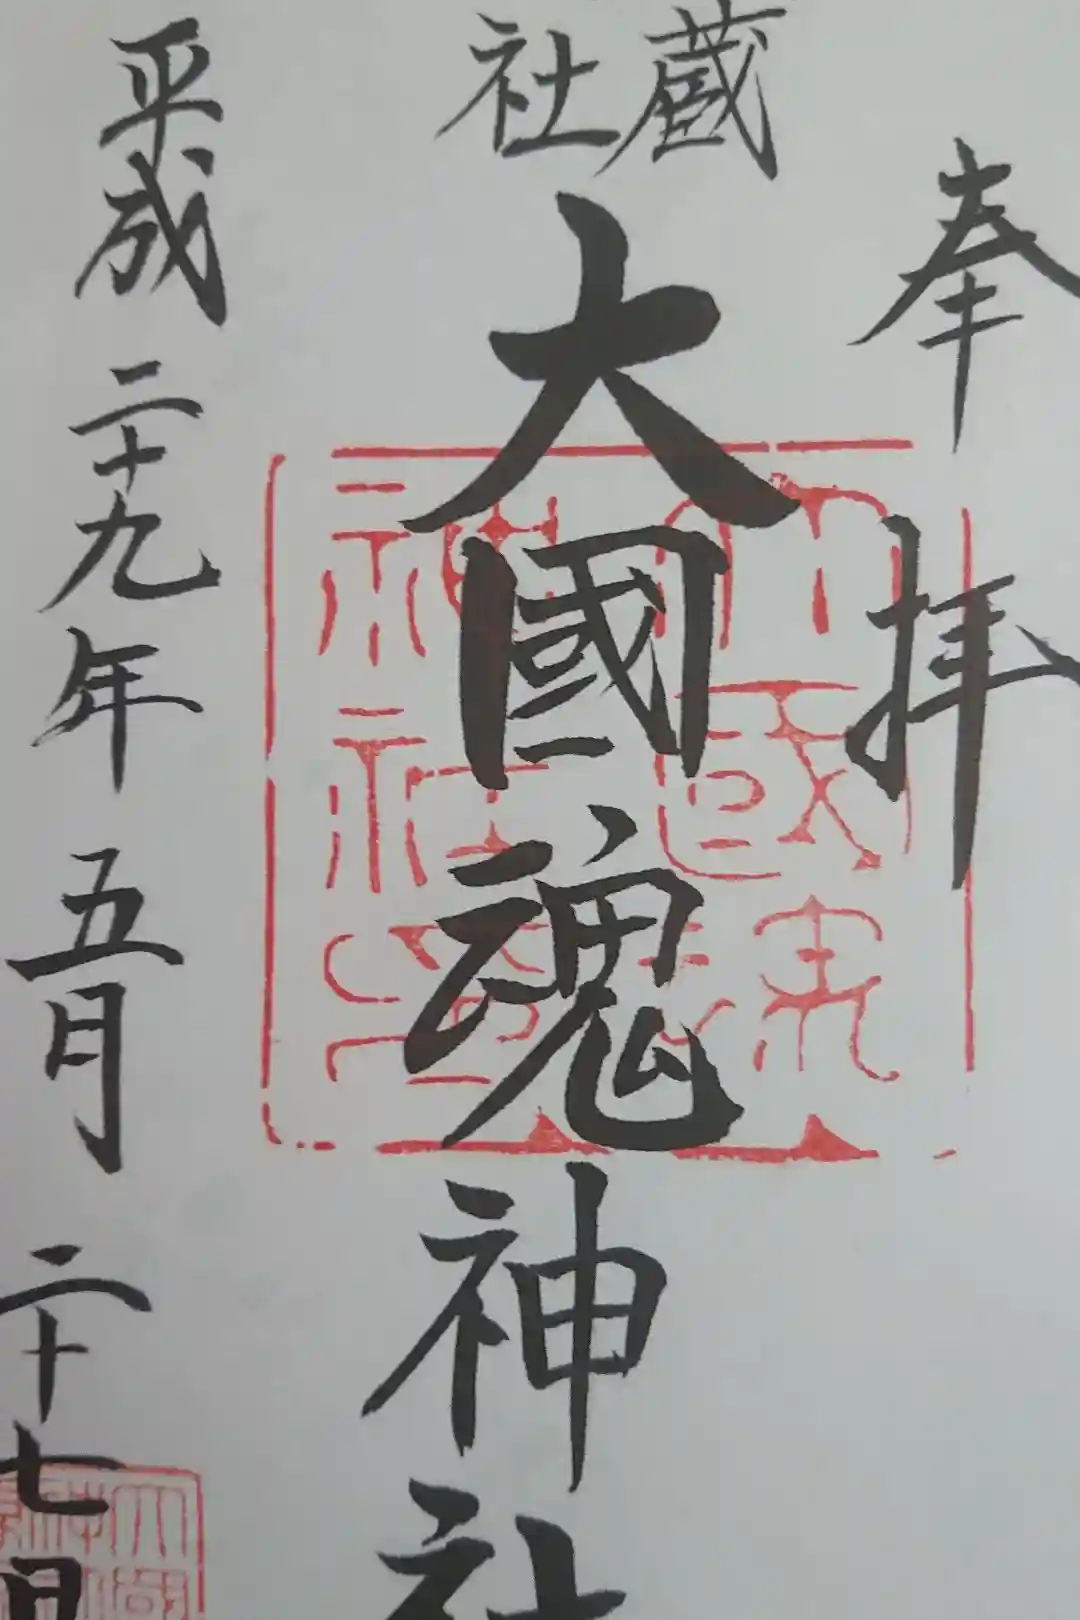 奉拝
蔵
社
大國魂神社
平成二十九年五月二十七日